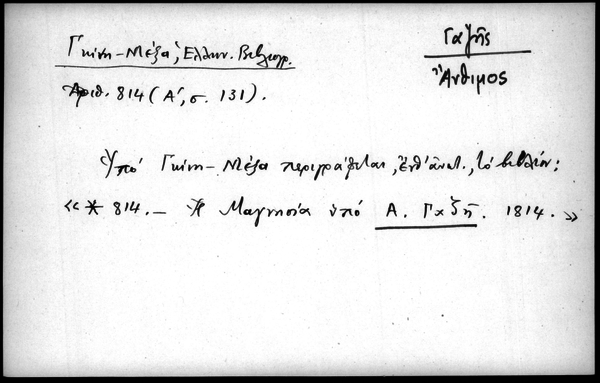 Γκίνη-Μέξα, Ελλην. Βιβλιογρ.
Γαζῆς
Ἄνθιμος
Ἀριθ. 814 (Α΄, σ. 131).
Ὑπό Γκίνη-Μέξα περιγράφεται, ἔνθ' ἀνωτ., τό βιβλίον:
«* 814. — Ἡ Μαγνησία ὑπό Α. Γαζῆ. 1814.»